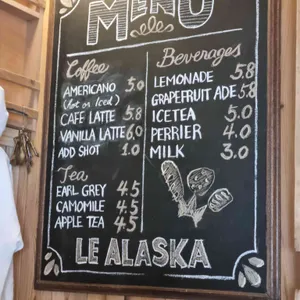 MENU
Coffee
AMERICANO 5.0
(Hot or Iced)
CAFE LATTE 5.8
VANILLA LATTE 6.0
ADD SHOT 1.0
Tea
EARL GREY 4.5
CAMOMILE 4.5
APPLE TEA 4.5
Beverages
LEMONADE 5.8
GRAPEFRUIT ADE 5.8
ICETEA 5.0
PERRIER 4.0
MILK 3.0
LE ALASKA